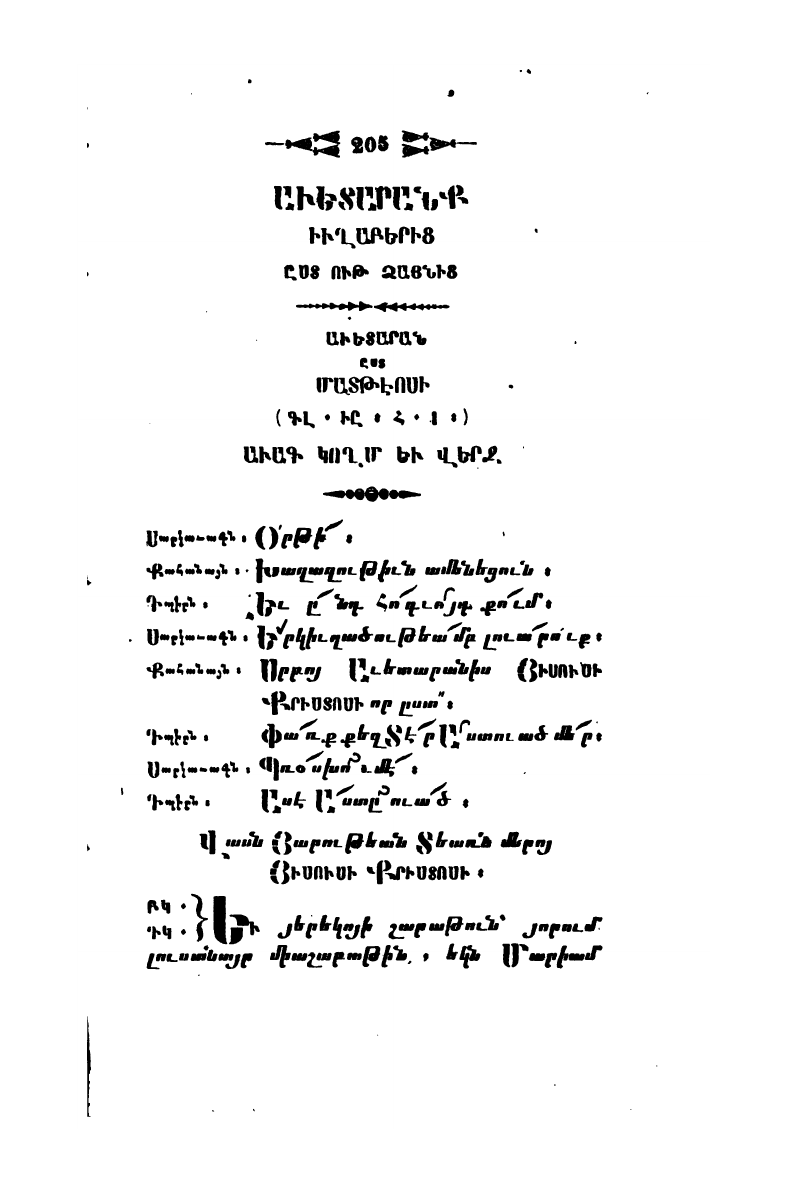 205
ԱՒԵՏԱՐԱՆՔ
ԻՒՂԱԲԵՐԻՑ
ԸՍՏ ՈՒԹ ՁԱՅՆԻՑ
ԱՒԵՏԱՐԱՆ
ԸՍՏ
ՄԱՏԹԷՈՍԻ
(ԳԼ. ԻԸ : Հ. 1 :)
ԱՒԱԳ ԿՈՂՄ ԵՒ ՎԵՐՋ.
Սարկաւագն : Օ՛րթի՜ :
Քահանայն : Խաղաղութիւն ամենեցուն :
Դպիրն : Եւ ը՜նդ Հո՜գւոյդ քո՜ւմ :
Սարկաւագն : Երկիւղածութեա՜մբ լուա՜րո՛ւք :
Քահանայն : Սրբոյ Աւետարանիս ՅԻՍՈՒՍԻ
ՔՐԻՍՏՈՍԻ որ ըստ՝՝ :
Դպիրն : Փա՜ռք քեզ Տէ՜ր Աստուած մե՜ր :
Սարկաւագն : Պռօ՜սխումէ՜ :
Դպիրն : Ասէ Ա՜ստըուա՜ծ :
Վասն Յարութեան Տեառն մերոյ
ՅԻՍՈՒՍԻ ՔՐԻՍՏՈՍԻ :
ԲԿ .
ԴԿ . ԵՒ յերեկոյի շաբաթուն՝ յորում
լուսանայր միաշաբաթին, եկն Մարիամ